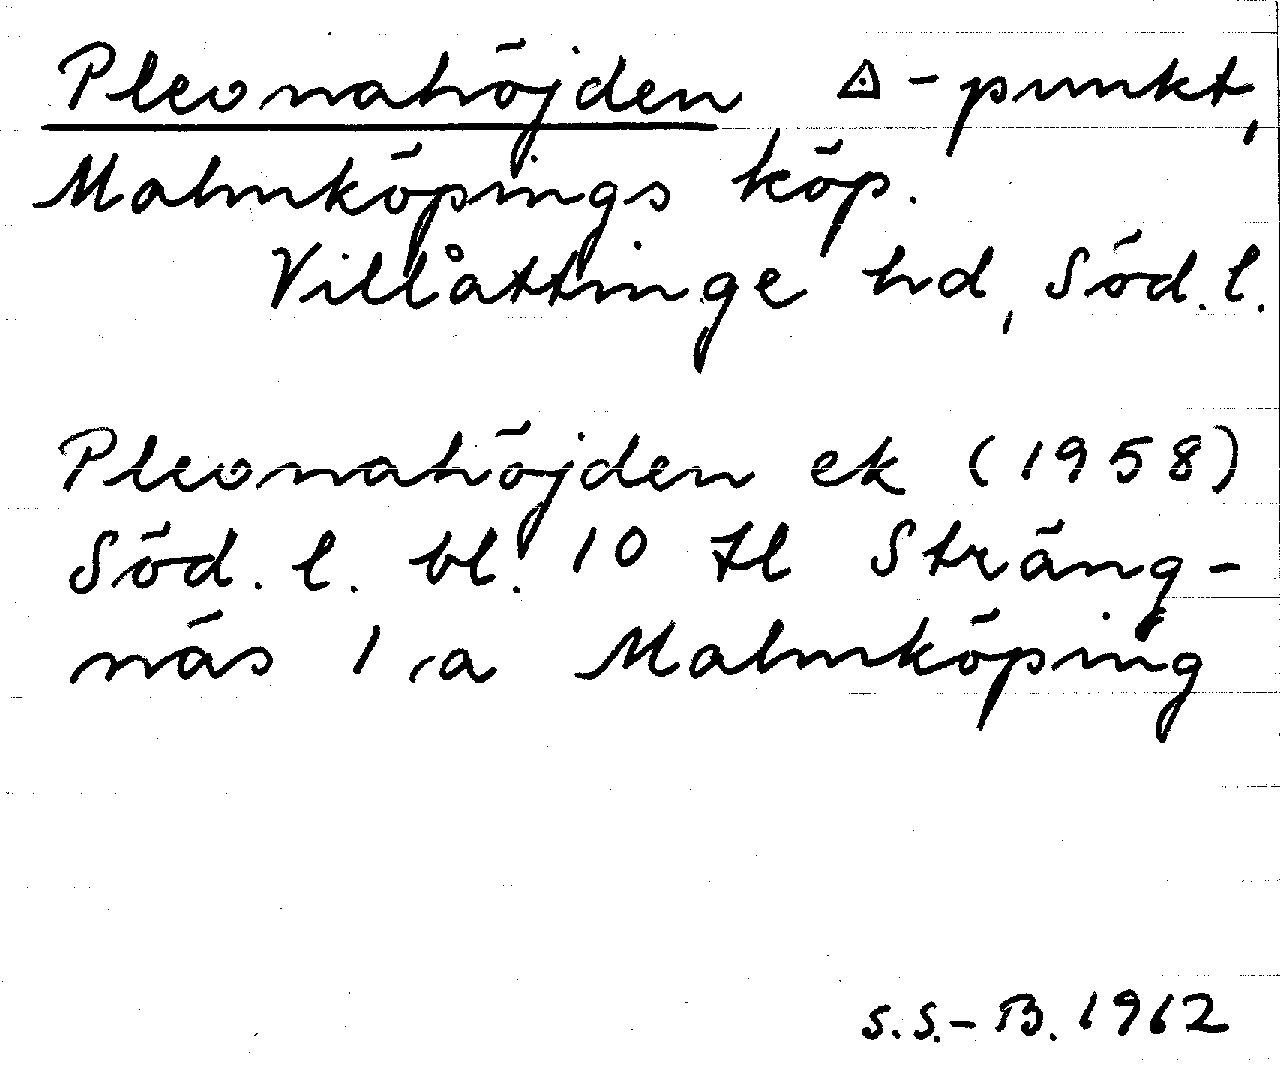 Plevnahöjden ◬-punkt,
Malmköpings köp.
Villåttinge hd, Söd. l.
Plevnahöjden ek (1958)
Söd. l. bl. 10 tl Sträng-
näs 1, a Malmköping
S.S.-B. 1962